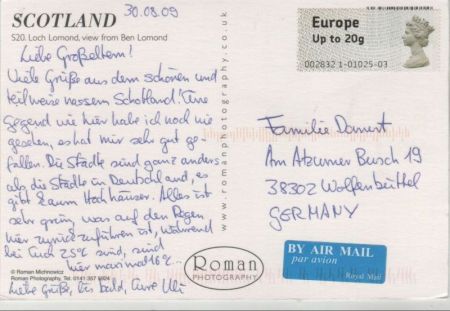 SCOTLAND
S20. Loch Lomond, view from Ben Lomond
30.08.09
Liebe Großeltern!
Viele Grüße aus dem schönen und
teilweise nassem Schottland! Eine
Gegend wie hier habe ich noch nie
gesehen, es hat mir sehr gut ge-
fallen. Die Städte sind ganz anders
als die Städte in Deutschland, es
gibt kaum Hochhäuser. Alles ist
sehr grün, was auf den Regen
hier zurückzuführen ist, während
bei Euch 25°C sind, sind
hier manchmal 16°C...
Liebe Grüße, bis bald, Eure Uli
© Roman Michnowicz
Roman Photography. Tel: 0141 357
www.romanphotography.co.uk
Roman
PHOTOGRAPHY
Europe
Up to 20g
002832 1-01025-03
Familie
Am Atzumer Busch 19
38302 Wolfenbüttel
GERMANY
BY AIR MAIL
par avion
Royal Mail